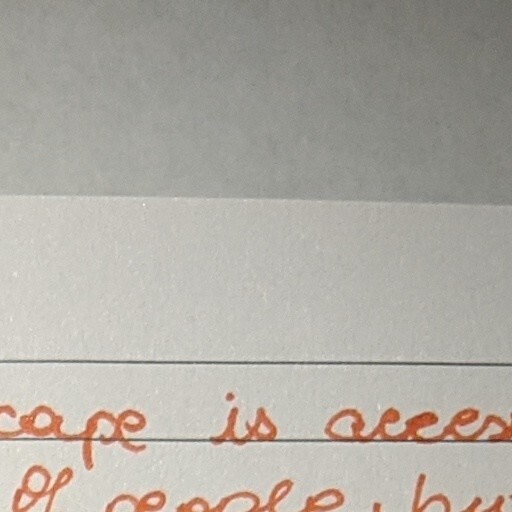 cape is acces
of people, bu